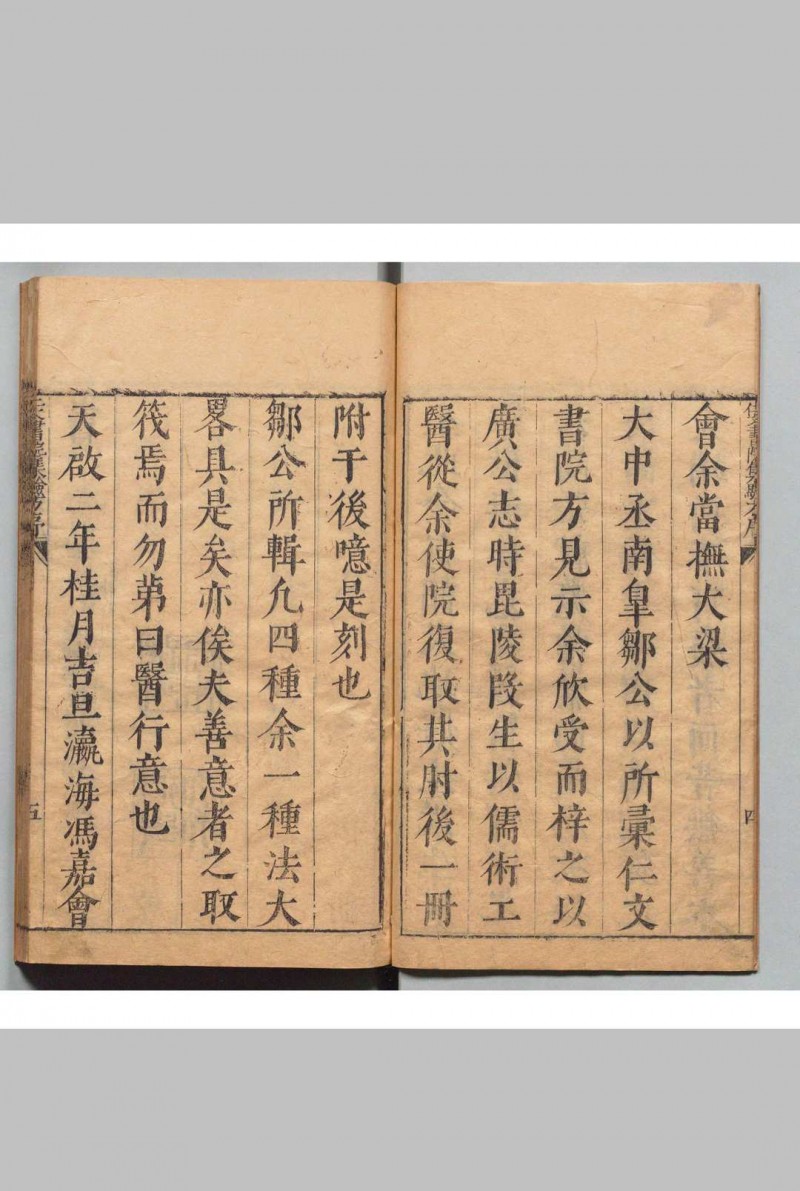 會余當撫大梁
大中丞南皐鄒公以所彚仁文
書院方見示余欣受而梓之以
廣公志時毘陵段生以儒術工
醫從余使院復取其肘後一冊
四
附于後噫是刻也
鄒公所輯凢四種余一種法大
畧具是矣亦俟夫善意者之取
筏焉而勿苐曰醫行意也
天啟二年桂月吉旦瀛海馮嘉會
五